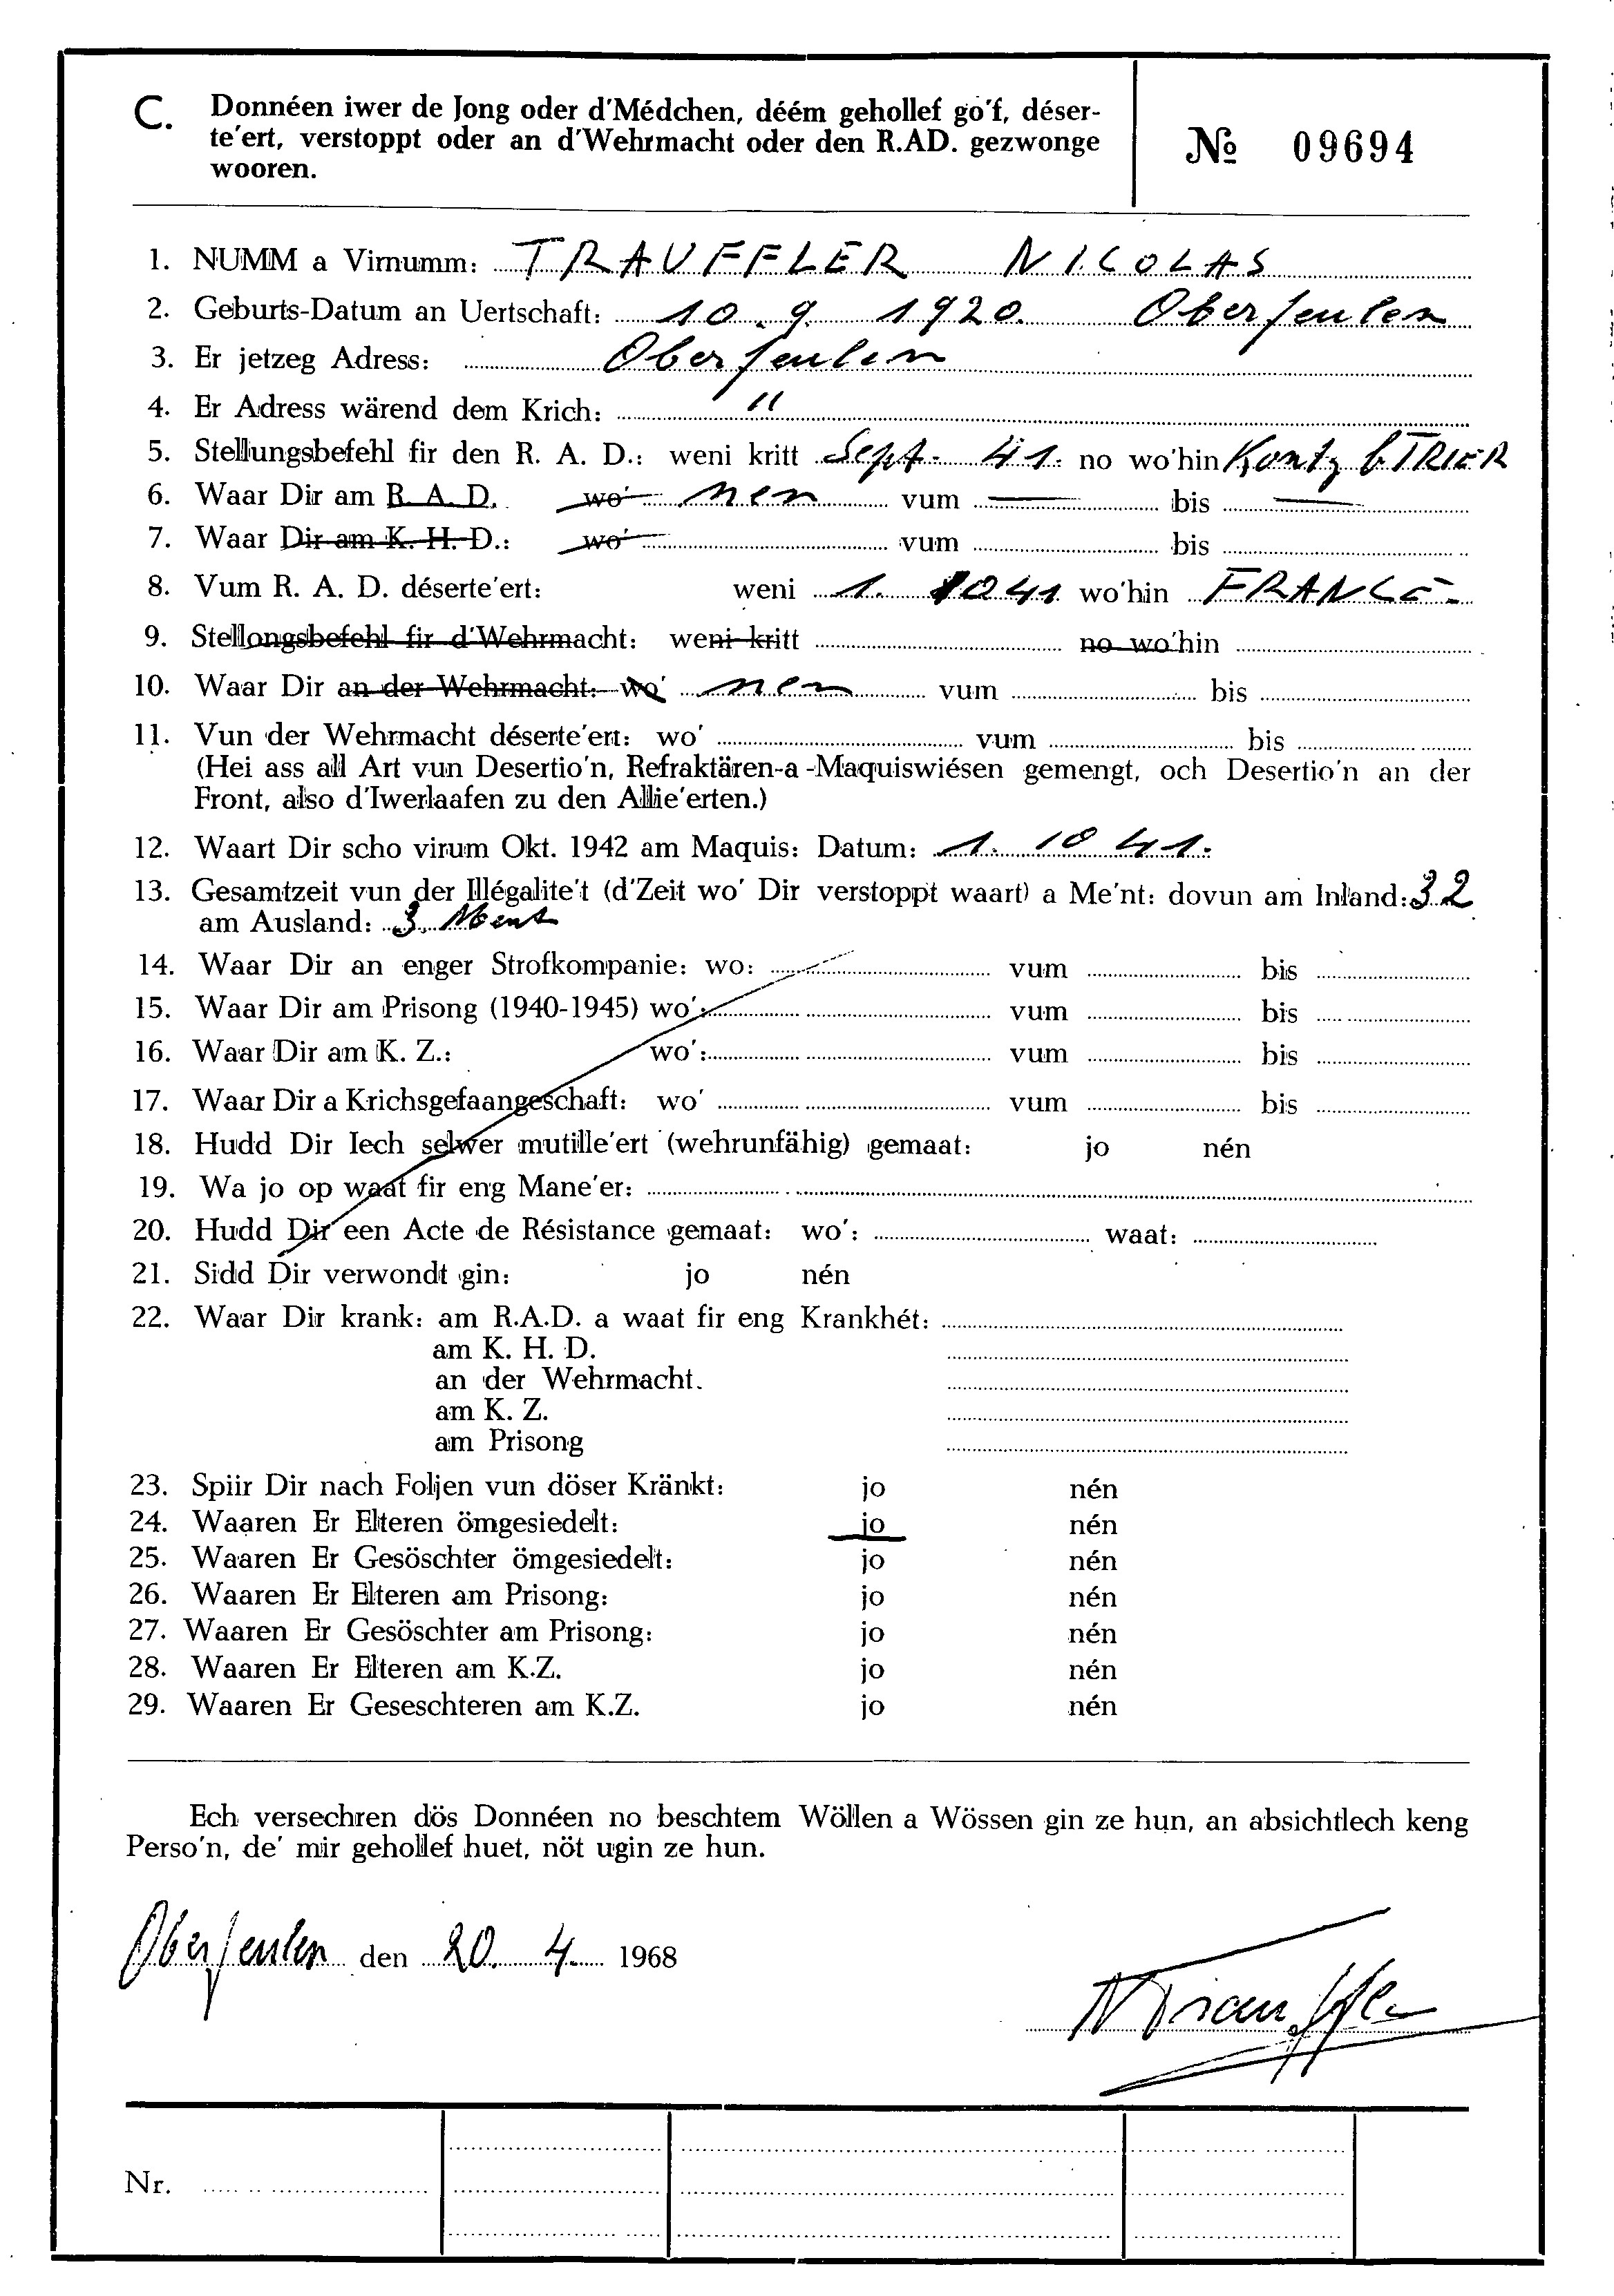 C. Donnéen iwer de Jong oder d'Médchen, déém gehollef go'f, déser-
te'ert, verstoppt oder an d'Wehrmacht oder den R.AD. gezwonge
wooren.
№ 09694
1. NUMM a Virnumm: TRAUFFLER NICOLAS
2. Geburts-Datum an Uertschaft: 10. 9. 1920. Oberfeulen
3. Er jetzeg Adress: Oberfeulen
4. Er Adress wärend dem Krich: "
5. Stellungsbefehl fir den R. A. D.: weni kritt Sept. 41. no wo'hin Kontz b. TRIER
6. Waar Dir am R. A. D. wo' nen vum — bis —
7. Waar Dir am K. H. D.: wo' vum bis
8. Vum R. A. D. déserte'ert: weni 1. 10 41 wo'hin FRANCE -
9. Stellongsbefehl fir d'Wehrmacht: weni kritt no wo'hin
10. Waar Dir an der Wehrmacht: wo' nen vum bis
11. Vun der Wehrmacht déserte'ert: wo' vum bis
(Hei ass all Art vun Desertio'n, Refraktären-a-Maquiswiésen gemengt, och Desertio'n an der
Front, also d'Iwerlaafen zu den Allie'erten.)
12. Waart Dir scho virum Okt. 1942 am Maquis: Datum: 1. 10 41.
13. Gesamtzeit vun der Illégalite't (d'Zeit wo' Dir verstoppt waart) a Me'nt: dovun am Inland: 32
am Ausland: 3. Ment
14. Waar Dir an enger Strofkompanie: wo: vum bis
15. Waar Dir am Prisong (1940-1945) wo': vum bis
16. Waar Dir am K. Z.: wo': vum bis
17. Waar Dir a Krichsgefaangeschaft: wo' vum bis
18. Hudd Dir Iech selwer mutille'ert (wehrunfähig) gemaat: jo nén
19. Wa jo op waat fir eng Mane'er:
20. Hudd Dir een Acte de Résistance gemaat: wo': waat:
21. Sidd Dir verwondt gin: jo nén
22. Waar Dir krank: am R.A.D. a waat fir eng Krankhét:
am K. H. D.
an der Wehrmacht.
am K. Z.
am Prisong
23. Spiir Dir nach Foljen vun döser Kränkt: jo nén
24. Waaren Er Elteren ömgesiedelt: jo nén
25. Waaren Er Gesöschter ömgesiedelt: jo nén
26. Waaren Er Elteren am Prisong: jo nén
27. Waaren Er Gesöschter am Prisong: jo nén
28. Waaren Er Elteren am K.Z. jo nén
29. Waaren Er Geseschteren am K.Z. jo nén
Ech versechren dös Donnéen no beschtem Wöllen a Wössen gin ze hun, an absichtlech keng
Perso'n, de' mir gehollef huet, nöt ugin ze hun.
Oberfeulen den 20. 4. 1968
NTrauffler
Nr.